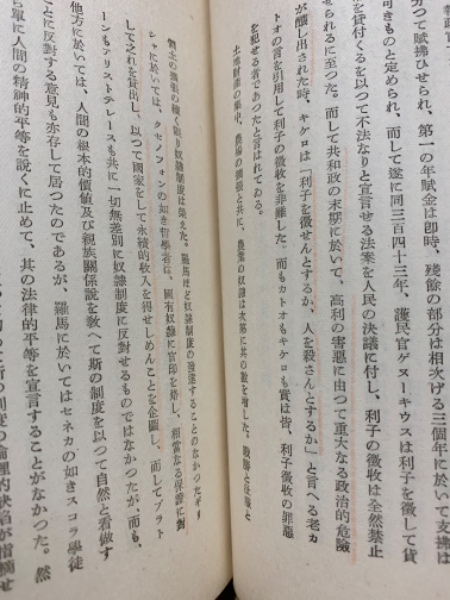 分つて賦拂ひせられ、第一の年賦金は卽時、殘餘の部分は相次げる三個年に於いて支拂は
可きものと定められ、而して遂に同三百四十三年、護民官ゲヌーキウスは利子を徵して貨
を貸付くるを以つて不法なりと宣言せる法案を人民の決議に付し、利子の徵收は全然禁止
られるに至つた。而して共和政の末期に於いて、高利の害惡に由つて重大なる政治的危險
が釀し出された時、キケロは「利子を徵せんとするか、人を殺さんとするか」と言へる老カ
トオの言を引用して利子の徵收を非難した。而もカトオもキケロも實は皆、利子徵收の罪惡
を犯せる者であつたと言はれてゐる。
土地財產の集中、農場の擴張と共に、農業の奴隷は次第に其の數を增した。戰勝と征服と
領土の擴張の續く限り奴隷制度は榮えた。羅馬ほど奴隷制度の發達することのなかつたギリ
シャに於いては、クセノフォンの如き哲學者は、國有奴隷に官印を烙し、相當なる保證に對
して之れを貸出し、以つて國家をして永續的收入を得せしめんことを企圖し、而してプラト
ーンもアリストテレースも共に一切無差別に奴隷制度に反對せるものではなかつたが、而も、
他方に於いては、人間の根本的價値及び親族關係說を敎へて斯の制度を以つて自然と看做す
ことに反對する意見も亦存して居つたのであるが、羅馬に於いてはセネカの如きスコラ學徒
も單に人間の精神的平等を說くに止めて、其の法律的平等を宣言することがなかつた。然